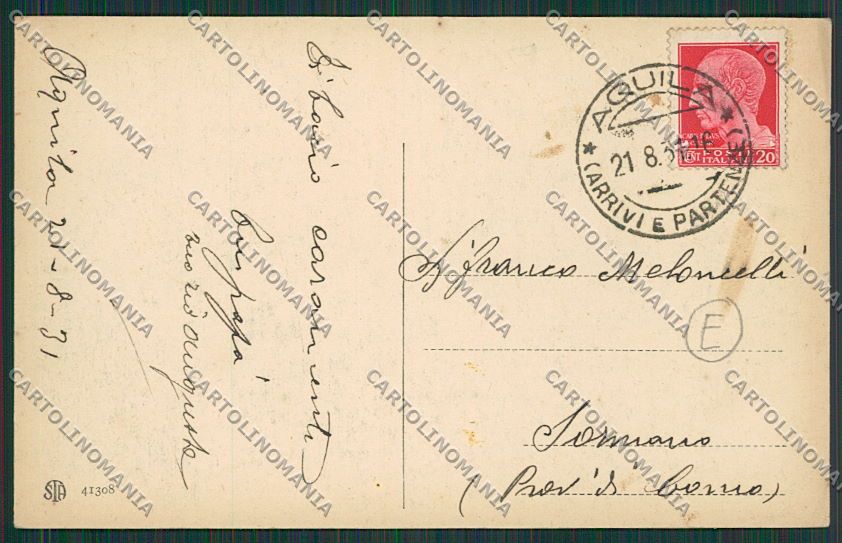 Aquila 21-8-31
Ti bacio caramente
tuo zio Augusto
AQUILA
21 8.31 16
(ARRIVI E PARTENZE)
POSTE
ITALIANE
CENT 20
Franco Meloncelli
E
Sormano
(Prov. di Como)
STA 41308
CARTOLINOMANIA